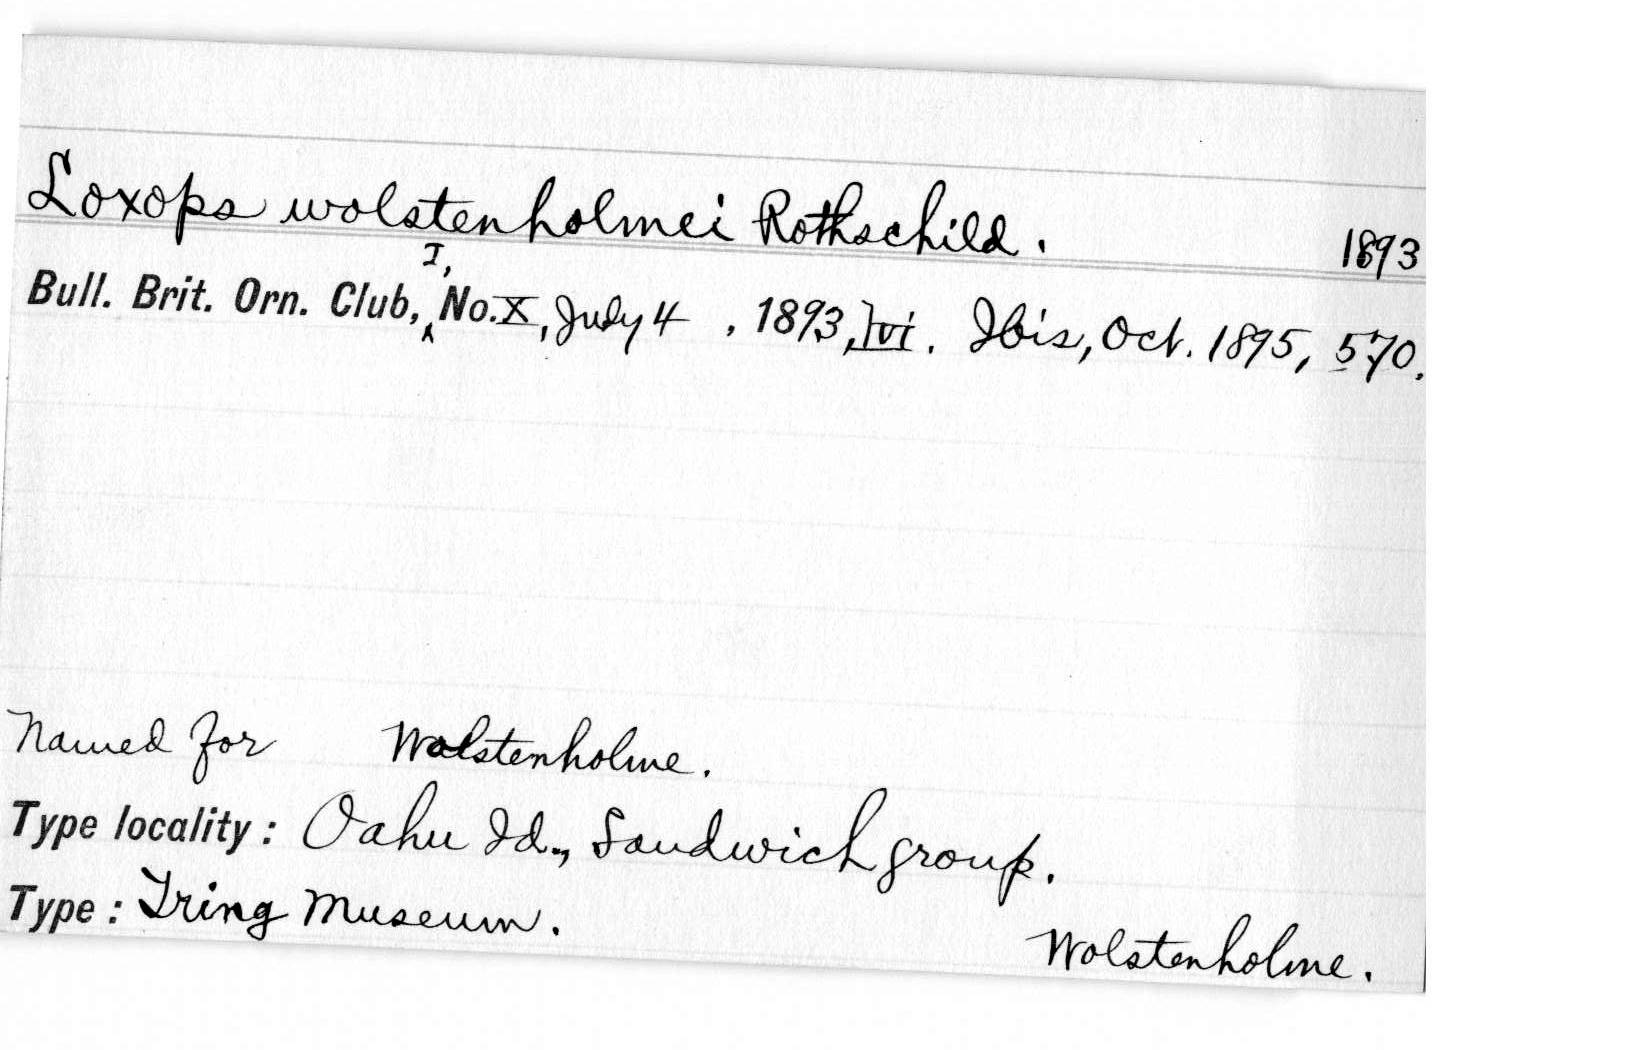 Loxops wolstenholmei Rothschild. 1893
Bull. Brit. Orn. Club, I, No. X, July 4, 1893, lvi. Ibis, Oct. 1895, 570.
Named for Wolstenholme.
Type locality: Oahu Id., Sandwich group.
Type: Tring Museum.
Wolstenholme.